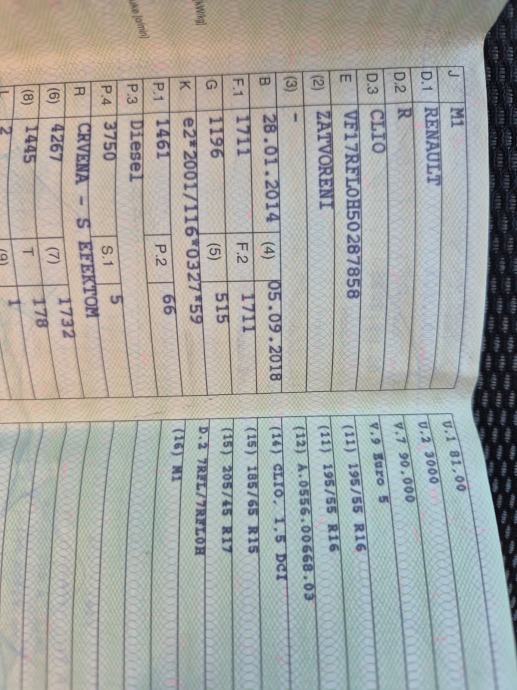 kW/kg]
J M1
D.1 RENAULT
D.2 R
D.3 CLIO
E VF17RFL0H50287858
(2) ZATVORENI
(3) -
B 28.01.2014 (4) 05.09.2018
F.1 1711 F.2 1711
G 1196 (5) 515
K e2*2001/116*0327*59
P.1 1461 P.2 66
P.3 Diesel
P.4 3750 S.1 5
R CRVENA - S EFEKTOM
(6) 4267 (7) 1732
(8) 1445 T 178
L 2 (9) 1
U.1 81.00
U.2 3000
V.7 90.000
V.9 Euro 5
(11) 195/55 R16
(11) 195/55 R16
(12) A.0556.00668.03
(14) CLIO, 1.5 DCI
(15) 185/65 R15
(15) 205/45 R17
D.2 7RFL/7RFL0H
(16) M1